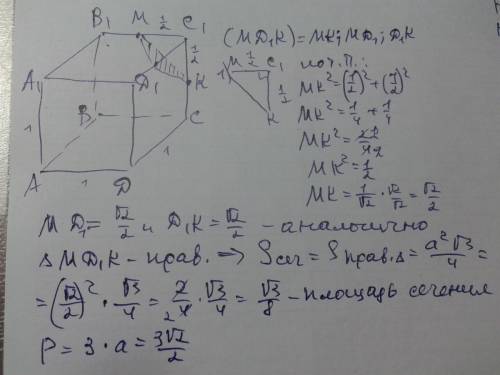 B₁ M ½ C₁
½
A₁ D₁ K
1 B C
A 1 D 1
(MD₁K) = MK; MD₁; D₁K
M ½ C₁
½
K
по т.П.:
MK² = (½)² + (½)²
MK² = 1/4 + 1/4
MK² = 2/4
MK² = 1/2
MK = 1/√2 · √2/√2 = √2/2
MD₁ = √2/2 и D₁K = √2/2 – аналогично
Δ MD₁K – прав. ⇒ Sсеч = Sправ.Δ = a²√3/4 =
= (√2/2)² · √3/4 = 2/4 · √3/4 = √3/8 – площадь сечения
P = 3 · a = 3√2/2